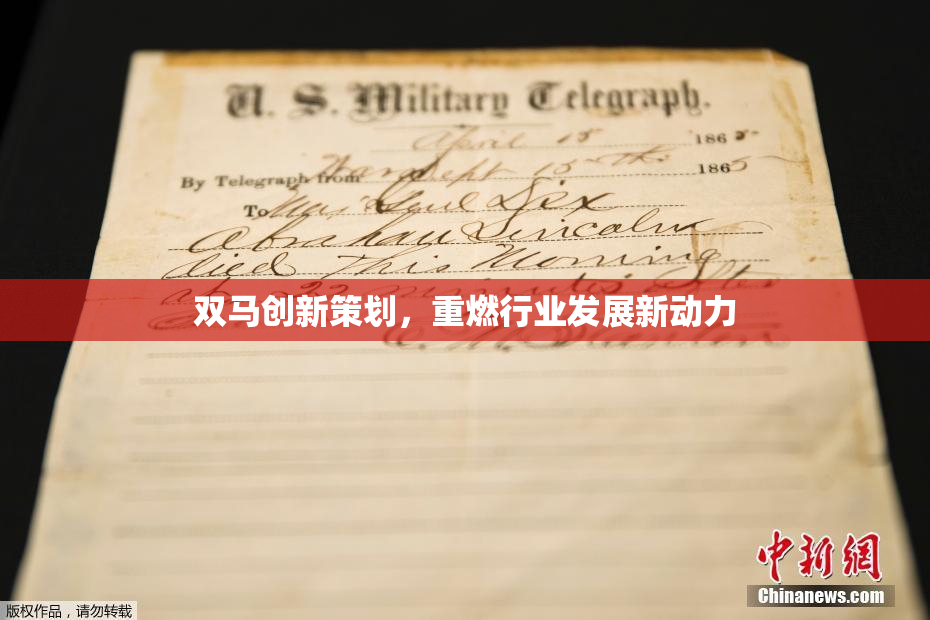 U. S. Military Telegraph.
April 15 1865
By Telegraph from War Dept 15th 1865
To Maj Genl Dix
Abraham Lincoln
died This Morning
at 22 minutes after
双马创新策划，重燃行业发展新动力
E. M. Stanton
中新网
Chinanews.com
版权作品，请勿转载